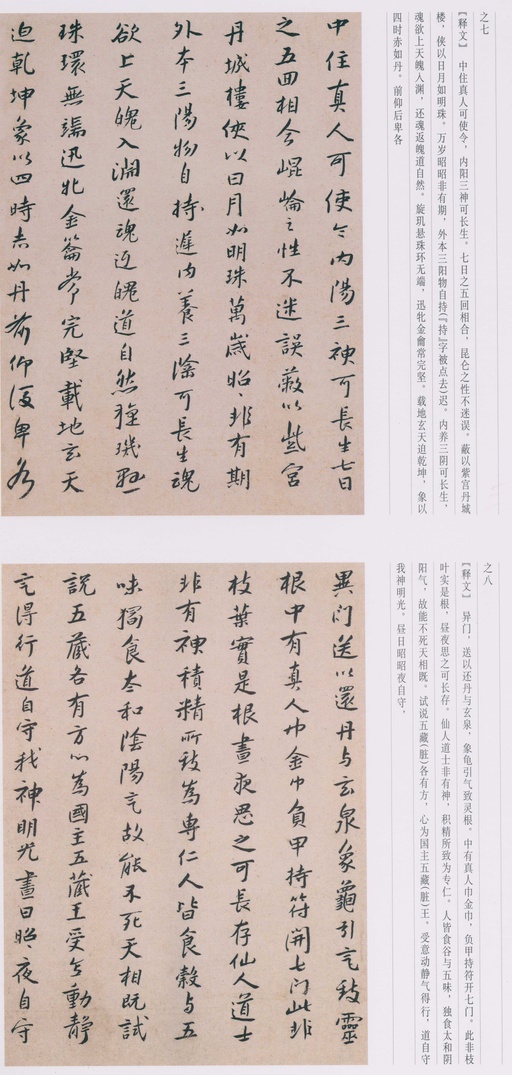 之七
【释文】 中住真人可使令，内阳三神可长生。七日之五回相合，昆仑之性不迷误。蔽以紫宫丹城
楼，侠以日月如明珠。万岁昭昭非有期，外本三阳物自持(『持』字被点去)迟。内养三阴可长生，
魂欲上天魄入渊，还魂返魄道自然。旋玑悬珠环无端，迅牝金龠常完坚。载地玄天迫乾坤，象以
四时赤如丹。前仰后卑各
中住真人可使令内陽三神可長生七日
之五回相合崐崘之性不迷誤蔽以紫宫
丹城樓俠以日月如明珠萬歲昭〻非有期
外本三陽物自持遲内養三陰可長生魂
欲上天魄入淵還魂返魄道自然琁璣懸
珠環無端迅牝金籥常完堅載地玄天
迫乾坤象以四時赤如丹前仰後卑各
之八
【释文】 异门，送以还丹与玄泉，象龟引气致灵根。中有真人巾金巾，负甲持符开七门。此非枝
叶实是根，昼夜思之可长存。仙人道士非有神，积精所致为专仁。人皆食谷与五味，独食太和阴
阳气，故能不死天相既。试说五藏(脏)各有方，心为国主五藏(脏)王。受意动静气得行，道自守
我神明光。昼日昭昭夜自守，
異门送以還丹与玄泉象龜引氣致靈
根中有真人巾金巾負甲持符開七门此非
枝葉實是根晝夜思之可長存仙人道士
非有神積精所致為專仁人皆食穀与五
味獨食太和陰陽氣故能不死天相既試
說五藏各有方心為國主五藏王受意動靜
氣得行道自守我神明光晝日昭〻夜自守